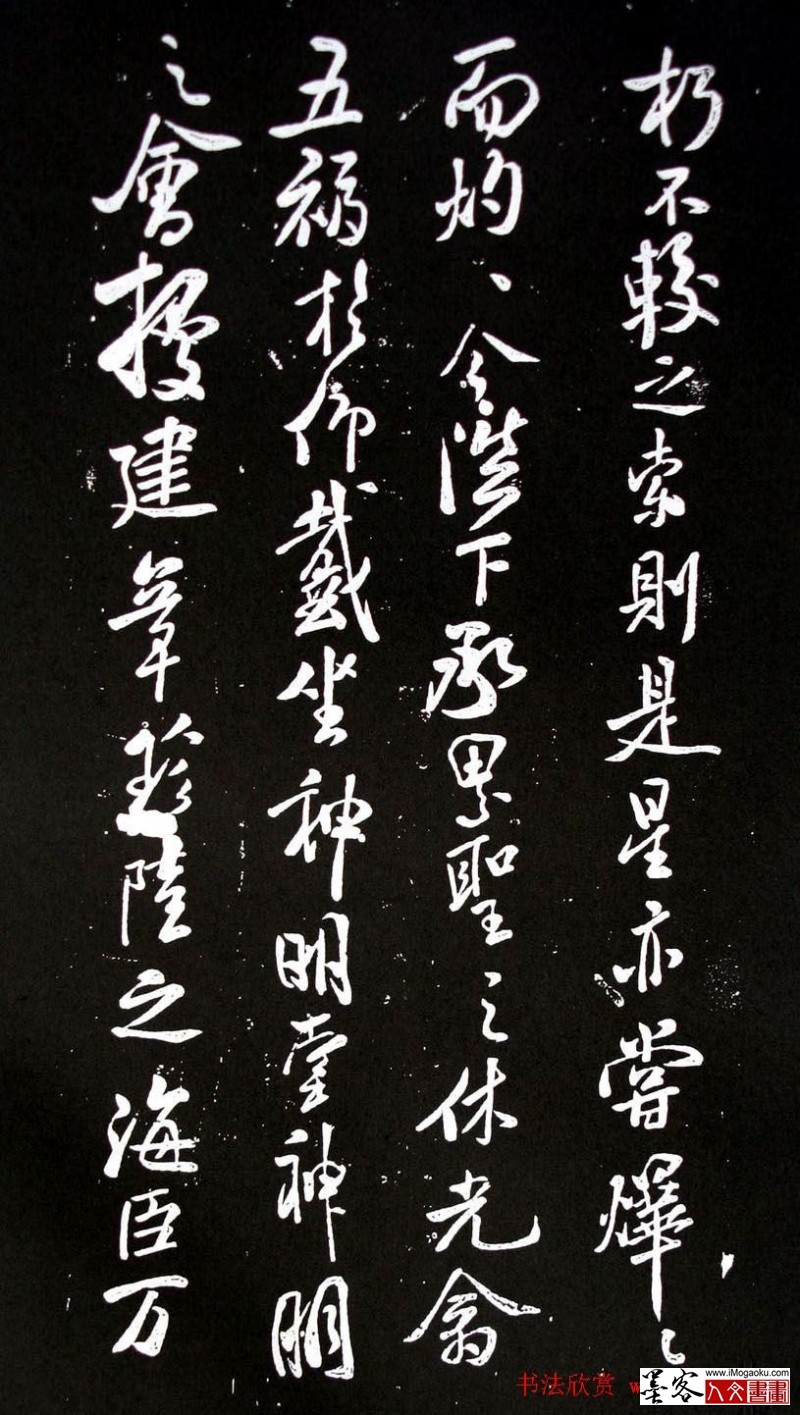 朽不較之索則是星亦嘗燁〻
而灼〻今陛下承累聖之休光翕
五福於仰戴坐神明堂神明
之會建章陸之海臣万
书法欣赏 w
墨客
www.iMogaoku.com
人文書畫